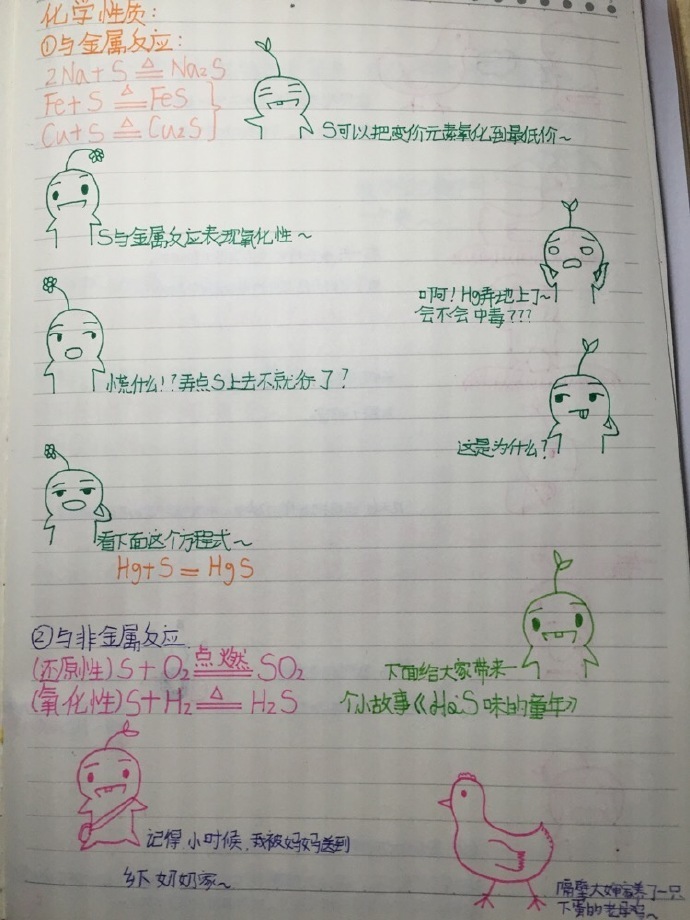 化学性质:
①与金属反应:
2Na+S ≜ Na₂S
Fe+S ≜ FeS
Cu+S ≜ Cu₂S
S可以把变价元素氧化到最低价~
S与金属反应表现氧化性~
啊!Hg弄地上了~
会不会中毒???
慌什么!?弄点S上去不就行了?
这是为什么?
看下面这个方程式~
Hg+S=HgS
②与非金属反应
(还原性)S+O₂ 点燃 SO₂
(氧化性)S+H₂ ≜ H₂S
下面给大家带来一
个小故事《H₂S味的童年》
记得小时候,我被妈妈送到
乡下奶奶家~
隔壁大婶家养了一只
下蛋的老母鸡